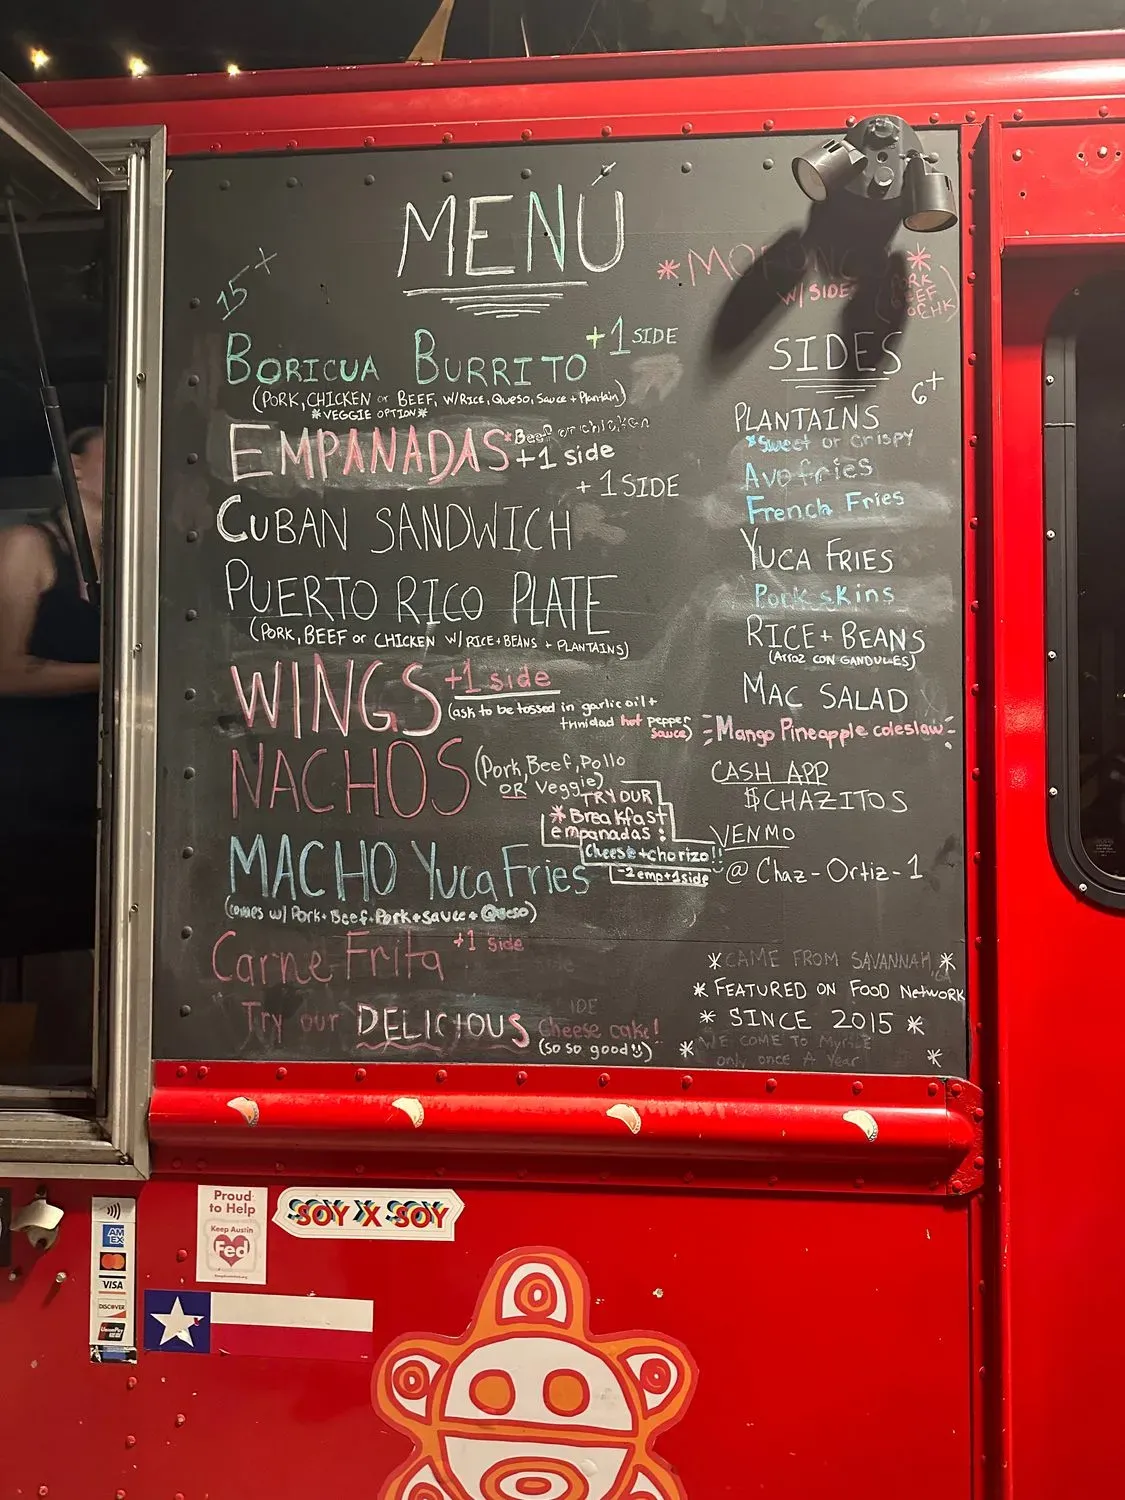 MENÚ
15+
BORICUA BURRITO +1 SIDE
(PORK, CHICKEN or BEEF, W/RICE, Queso, Sauce + Plantain)
*VEGGIE OPTION*
EMPANADAS *Beef or chicken
+1 side
+ 1 SIDE
CUBAN SANDWICH
PUERTO RICO PLATE
(PORK, BEEF or CHICKEN W/RICE+BEANS + PLANTAINS)
WINGS +1 side
(ask to be tossed in garlic oil +
trinidad hot pepper
sauce)
NACHOS (Pork, Beef, Pollo
OR Veggie)
TRY OUR
*Breakfast
empanadas:
Cheese+chorizo!!
-2 emp+1side
MACHO Yuca Fries
(comes w/ Pork+Beef+Pork+sauce+Queso)
Carne Frita +1 side
Try our DELICIOUS cheese cake!
(so so good)
*
W/ SIDE
SIDES
6+
PLANTAINS
*Sweet or crispy
Avo fries
French Fries
YUCA FRIES
Pork skins
RICE + BEANS
(Arroz CON GANDULES)
MAC SALAD
Mango Pineapple coleslaw
CASH APP
$CHAZITOS
VENMO
@ Chaz-Ortiz-1
*CAME FROM SAVANNAH, GA*
* FEATURED ON FOOD NETWORK
* SINCE 2015 *
* WE COME TO Myrtle
only once A Year *
Proud
to Help
Keep Austin
Fed
SOY X SOY
AM
EX
VISA
DISCOVER
UnionPay